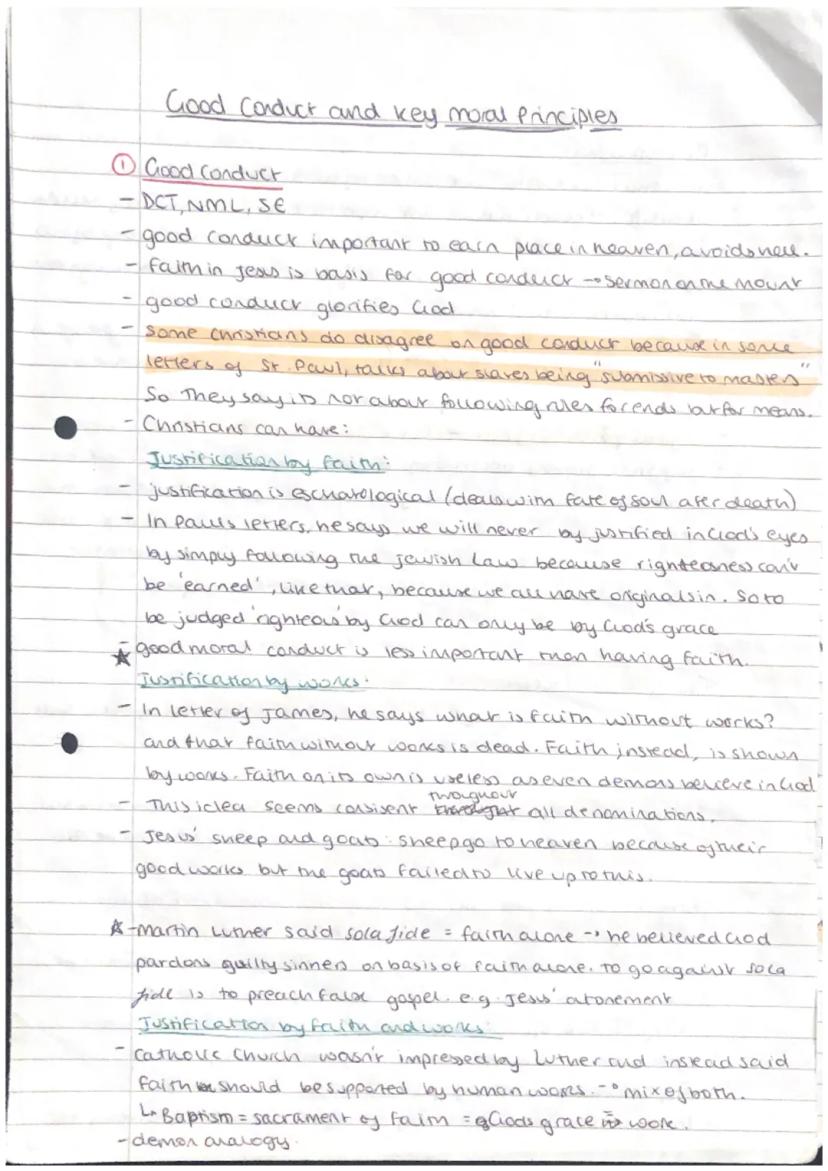 Good Conduct and key moral Principles
① Good Conduct
- DCT, NML, SE
- good conduct important to earn place in heaven, avoids hell.
- Faith in Jesus is basis for good conduct → Sermon on the Mount
- good conduct glorifies God
- Some Christians do disagree on good conduct because in some
letters of St. Paul, talks about slaves being "submissive to masters"
So They say is not about following rules for ends but for means.
- Christians can have:
Justification by faith:
- justification is eschatological (deals with fate of soul after death)
- In Pauls letters, he says we will never by justified in God's eyes
by simply following the Jewish Law because righteousness can't
be 'earned', like that, because we all have original sin. So to
be judged 'righteous' by God can only be by God's grace
☆ - good moral conduct is less important than having faith.
Justification by works:
- In letter of James, he says what is faith without works?
and that faith without works is dead. Faith instead, is shown
by works. Faith on its own is useless as even demons believe in God
- This idea seems consisent throughout all denominations.
- Jesus' sheep and goats: sheep go to heaven because of their
good works but the goats failed to live up to this.
☆ - martin Luther said sola fide = faith alone → he believed God
pardons guilty sinners on basis of faith alone. To go against sola
fide is to preach false gospel. e.g. Jesus' atonement
Justification by faith and works:
- Catholic Church wasn't impressed by Luther and instead said
faith should be supported by human works. → mix of both.
↳ Baptism = sacrament of faith = God's grace work.
- demon analogy.